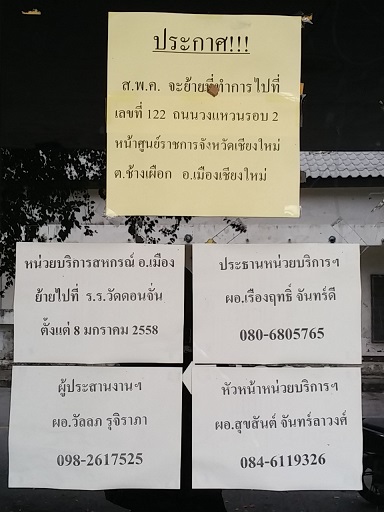 ประกาศ!!!
ส.พ.ค. จะย้ายที่ทำการไปที่
เลขที่ 122 ถนนวงแหวนรอบ 2
หน้าศูนย์ราชการจังหวัดเชียงใหม่
ต.ช้างเผือก อ.เมืองเชียงใหม่
หน่วยบริการสหกรณ์ อ.เมือง
ย้ายไปที่ ร.ร.วัดดอนจั่น
ตั้งแต่ 8 มกราคม 2558
ประธานหน่วยบริการฯ
ผอ.เรืองฤทธิ์ จันทร์ดี
080-6805765
ผู้ประสานงานฯ
ผอ.วัลลภ รุจิราภา
098-2617525
หัวหน้าหน่วยบริการฯ
ผอ.สุขสันต์ จันทร์ลาวงศ์
084-6119326